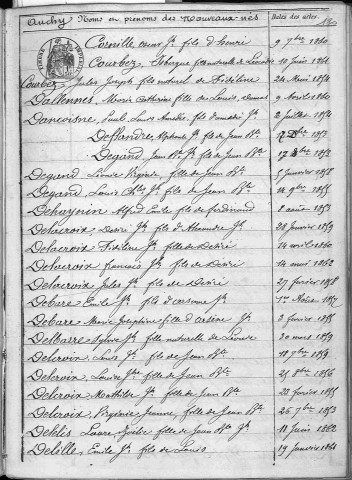 Auchy Noms en prénoms des Nouveaux-nés Dates des actes.
Corneille, Jh fils d' 9 7bre 1860
Courbez, fille naturelle de 10 juin 1861
Courbez Jules Joseph fils naturel de Fidéline 24 Août 1854
Dallennes, Marie Catherine fille de Louis, 9 Avril 1860
Dancoisne, Paul Louis Amédée, fils d'Amédée Jh 2 juillet 1854
Deflandre, Alphonse Jh fils de Jean Bte 1853
Degand, Jean Bte Jh fils de Jean Bte 1853
Degand, Léonie Virginie, fille de Jean Bte 5 janvier 1858
Degand, Louis Chles Jh fils de Jean Bte 14 9bre 1855
Dehaynin, Alfred Emile fils de ferdinand 8 août 1853
Delacroix, Désiré Jh fils d'Alexandre Jh 28 janvier 1859
Delacroix, Jh fils de Désiré 14 avril 1860
Delacroix, François Jh fils de Désiré 14 août 1862
Delacroix Jules Jh fils de Désiré 27 février 1858
Debarre, Emile Jh fils d'arsenne Jh 1er 1857
Debarre, Marie Joséphine fille d'arsène Jh 2 février 1855
Delbarre, Sylvie Jh fille naturelle de Louise 20 mars 1859
Delcroix, Louis Jh fils de Jean Bte 18 7bre 1859
Delcroix, Louise fille de Jean Bte 21 8bre 1856
Delcroix, Mathilde Jh fille de Jean Bte 23 février 1855
Delcroix, Virginie Jeanne, fille de Jean Bte 26 7bre 1853
Delelis, Laure Joëlie fille de Jean Bte Jh 11 juin 1862
Delille, Emile Jh fils de Louis 19 janvier 1861